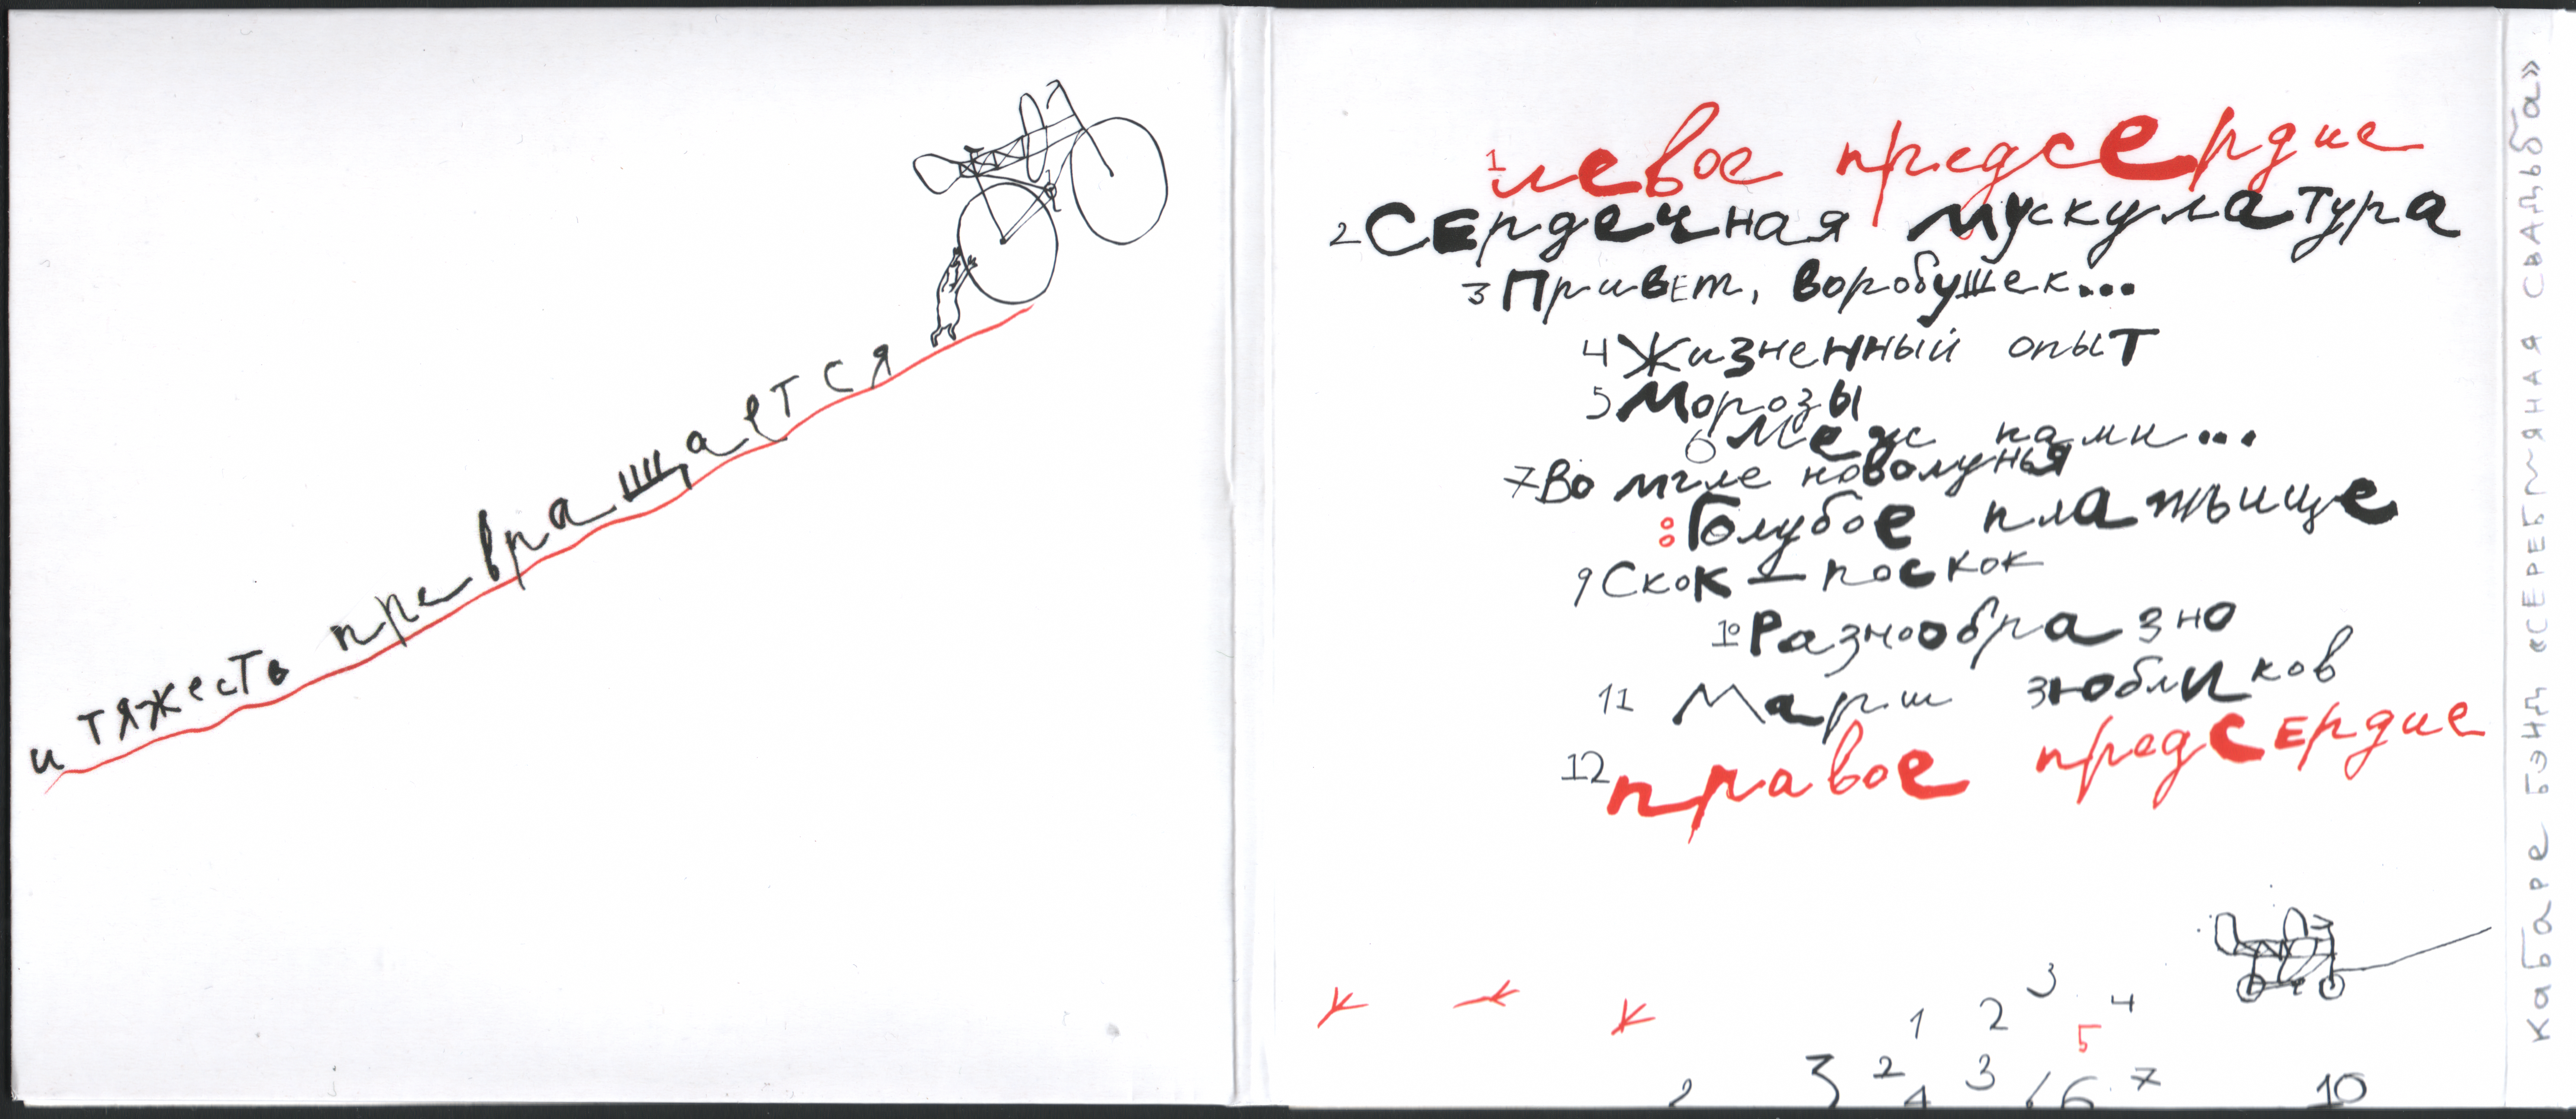 и тяжесть превращается
1 левое предсердие
2 Сердечная мускулатура
3 Привет, воробушек...
4 Жизненный опыт
5 Морозы
6 Меж нами...
7 Во мгле новолунья
8 Голубое платьице
9 Скок - поскок
10 Разнообразно
11 Марш зюбликов
12 правое предсердие
1 2 3 4
5
2 3 2 4 3 6 7 10
Кабаре бэнд «СЕРЕБРЯНАЯ СВАДЬБА»